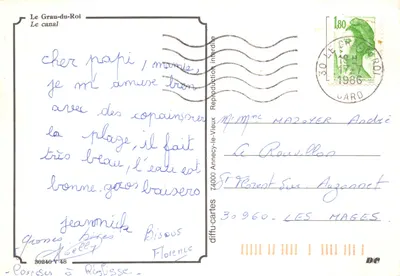 Le Grau-du-Roi
Le canal
cher papi, mamie,
je m'amuse bien
avec des copains sur
la plage, il fait
très beau, l'eau est
bonne. gros baisers
jeannick
grosses bises
Bisous
Florence
30240 Y 45
Pensées à
diffu-cartes 74000 Annecy-le-Vieux Reproduction interdite
1,80
30 LE GRAU DU ROI
1986
GARD
Mr Mme MAZOYER André
Le Rouvillon
St Florent Sur Auzonnet
30960 - LES MAGES.